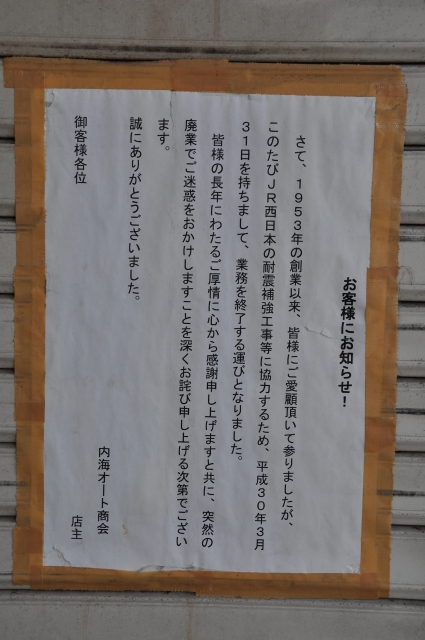 お客様にお知らせ！
さて、１９５３年の創業以来、皆様にご愛顧頂いて参りましたが、
このたびＪＲ西日本の耐震補強工事等に協力するため、平成３０年３月
３１日を持ちまして、業務を終了する運びとなりました。
皆様の長年にわたるご厚情に心から感謝申し上げますと共に、突然の
廃業でご迷惑をおかけしますことを深くお詫び申し上げる次第でござい
ます。
誠にありがとうございました。
内海オート商会
店主
御客様各位